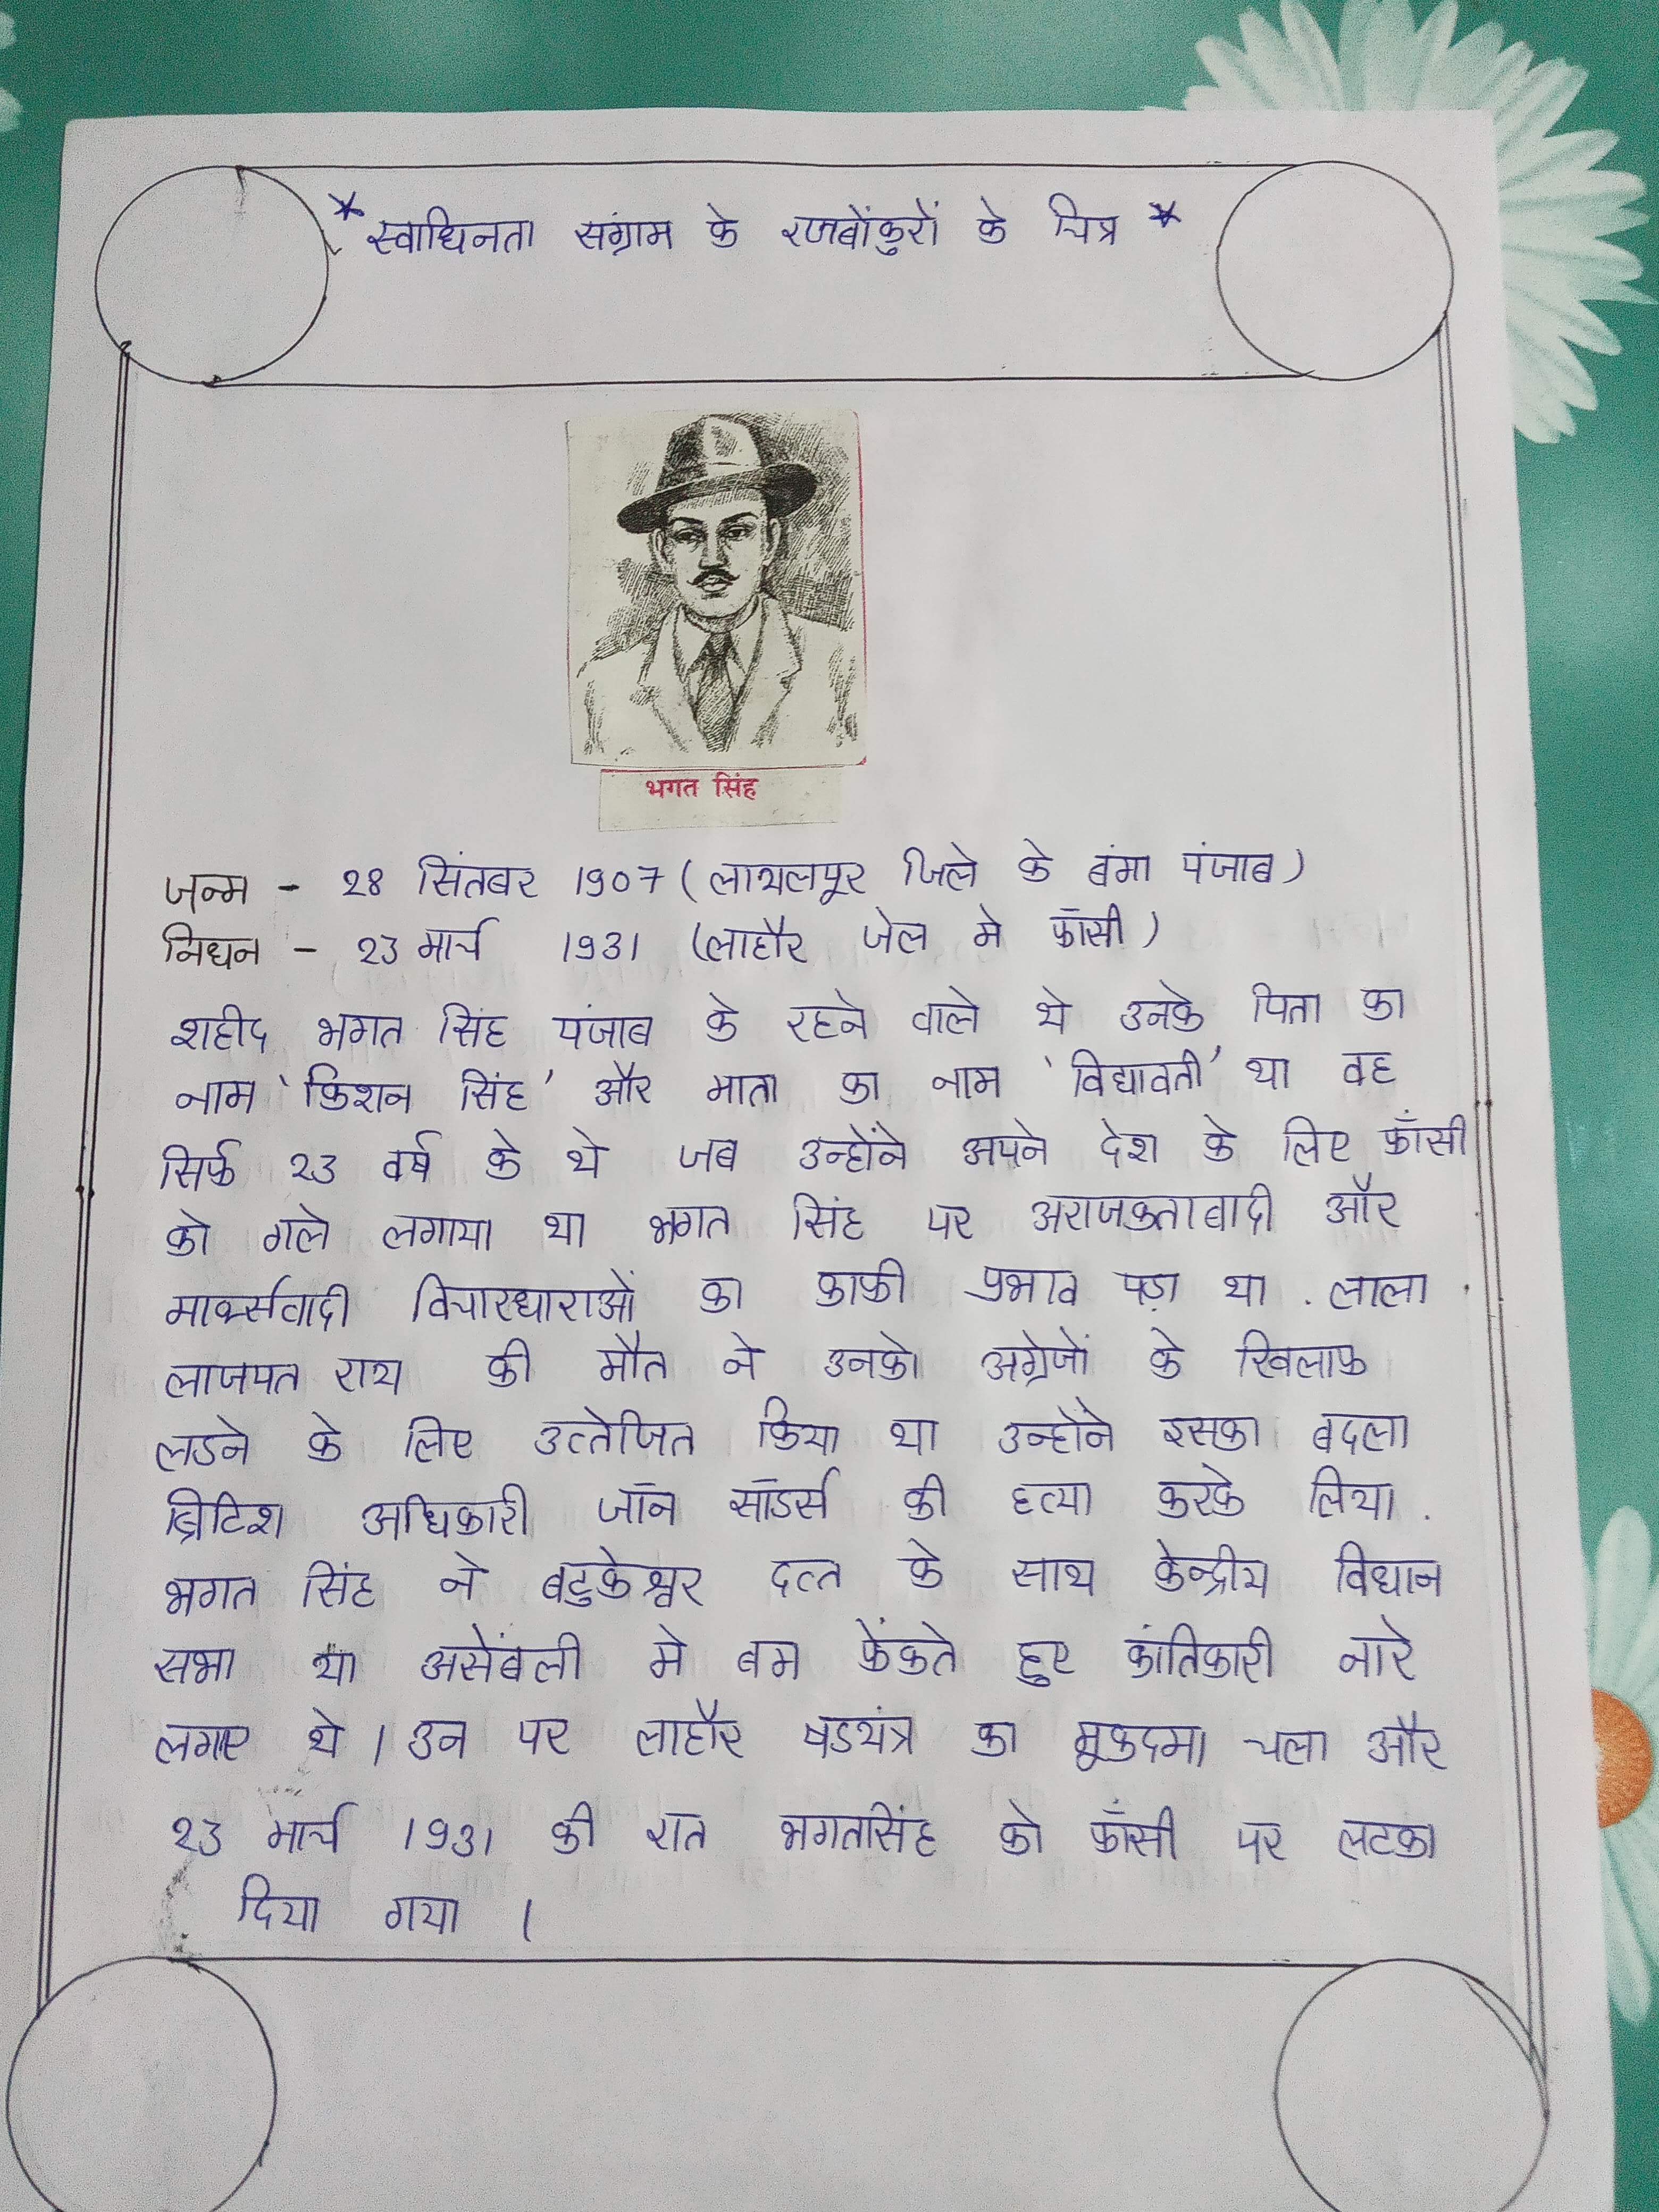 * स्वाधिनता संग्राम के रजबोंकुरों के चित्र *
भगत सिंह
जन्म - 28 सितंबर 1907 (लायलपूर जिले के बंगा पंजाब)
निधन - 23 मार्च 1931 (लाहौर जेल मे फाँसी)
शहीद भगत सिंह पंजाब के रहने वाले थे उनके पिता का
नाम 'किशन सिंह' और माता का नाम 'विद्यावती' था वह
सिर्फ 23 वर्ष के थे जब उन्होंने अपने देश के लिए फाँसी
को गले लगाया था भगत सिंह पर अराजकतावादी और
मार्क्सवादी विचारधाराओं का काफी प्रभाव पड़ा था . लाला
लाजपत राय की मौत ने उनको अग्रेजों के खिलाफ
लडने के लिए उत्तेजित किया था उन्होंने इसका बदला
ब्रिटिश अधिकारी जॉन सॉंडर्स की हत्या करके लिया .
भगत सिंह ने बटुकेश्वर दत्त के साथ केन्द्रीय विधान
सभा या असेंबली मे बम फेंकते हुए क्रांतिकारी नारे
लगाए थे । उन पर लाहौर षडयंत्र का मूकदमा चला और
23 मार्च 1931 की रात भगतसिंह को फाँसी पर लटका
दिया गया ।